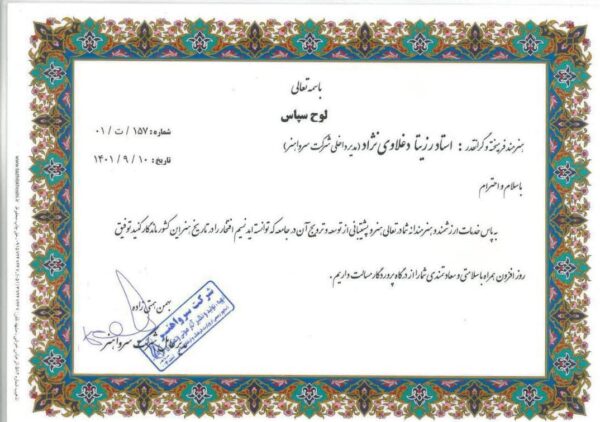 باسمه تعالی
لوح سپاس
شماره : ۱۵۷ / ت / ۰۱
هنرمند فرهیخته و گرانقدر : استاد رزیتا دغلاوی نژاد (مدیر داخلی شرکت سرواهنر)
تاریخ : ۱۰ / ۹ / ۱۴۰۱
باسلام و احترام
به پاس خدمات ارزشمند و هنرمندانه شما در تعالی هنر و پشتیبانی از توسعه و ترویج آن در جامعه که توانسته اید نسیم افتخار را در تاریخ هنر این کشور ماندگار کنید توفیق
روز افزون همراه با سلامتی و سعادتمندی شما را از درگاه پروردگار مسالت داریم .
بهمن همتی زاده
شرکت سرواهنر
شرکت سرواهنر